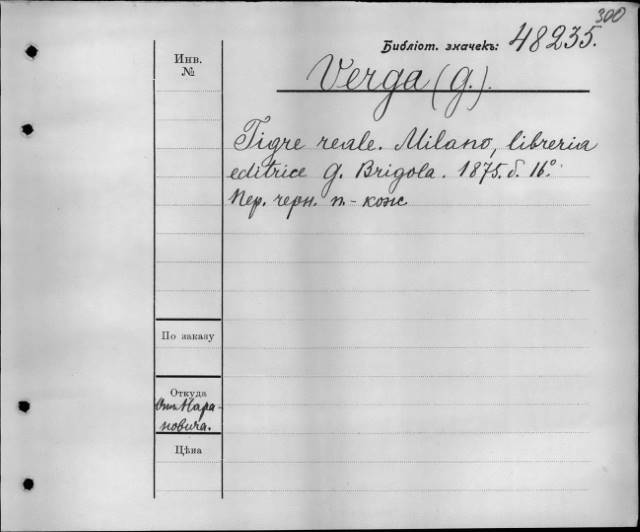 300
Библіот. значекъ: 48235.
Инв.
№
Verga (G.).
Tigre reale. Milano, libreria
editrice G. Brigola. 1875. б. 16°.
Пер. черн. п.-кож
По заказу
Откуда
Отъ Мара-
новича.
Цѣна